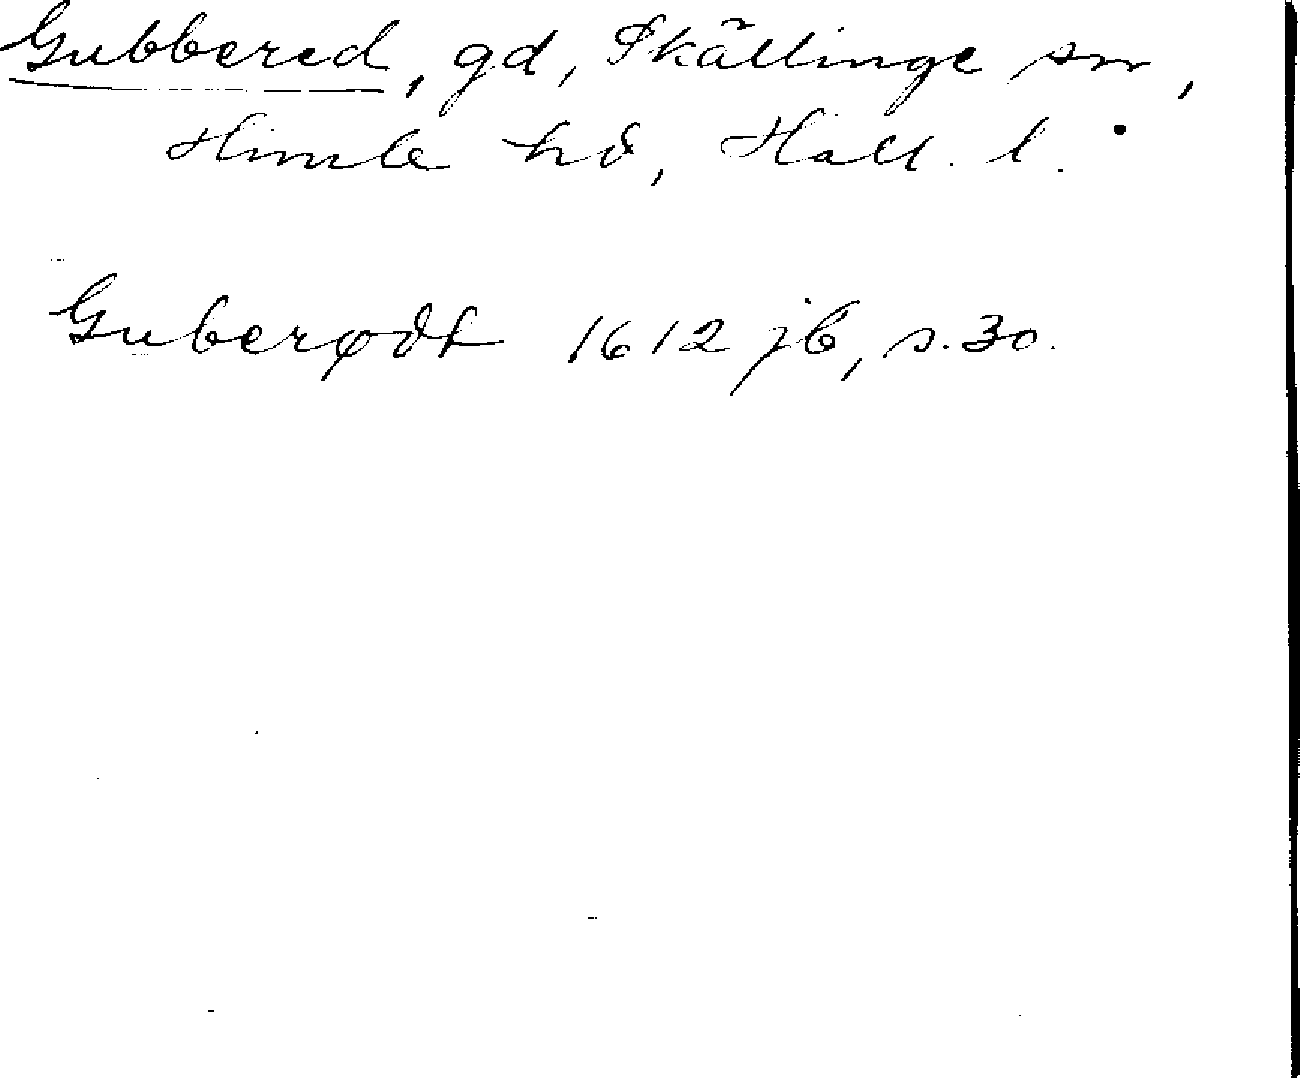 Gubbered, gd, Skällinge sn,
Himle hd, Hall. l.
Guberødt 1612 jb, s. 30.